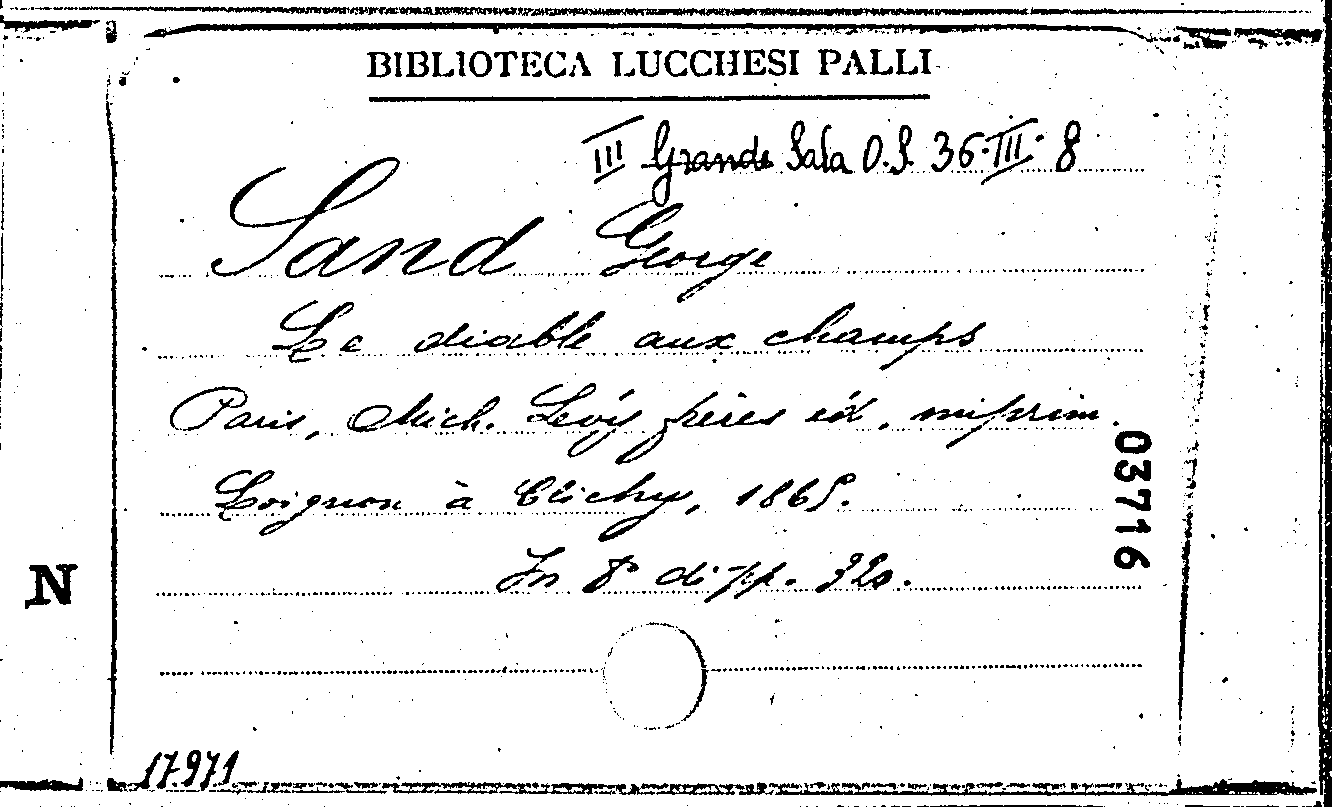 BIBLIOTECA LUCCHESI PALLI
III Grande Sala O.S. 36-III-8
Sand George
Le diable aux champs
Paris, Mich. Levÿ frères éd., imprim.
Loignon à Clichy, 1865.
In 8° di pp. 320.
03716
N
17971